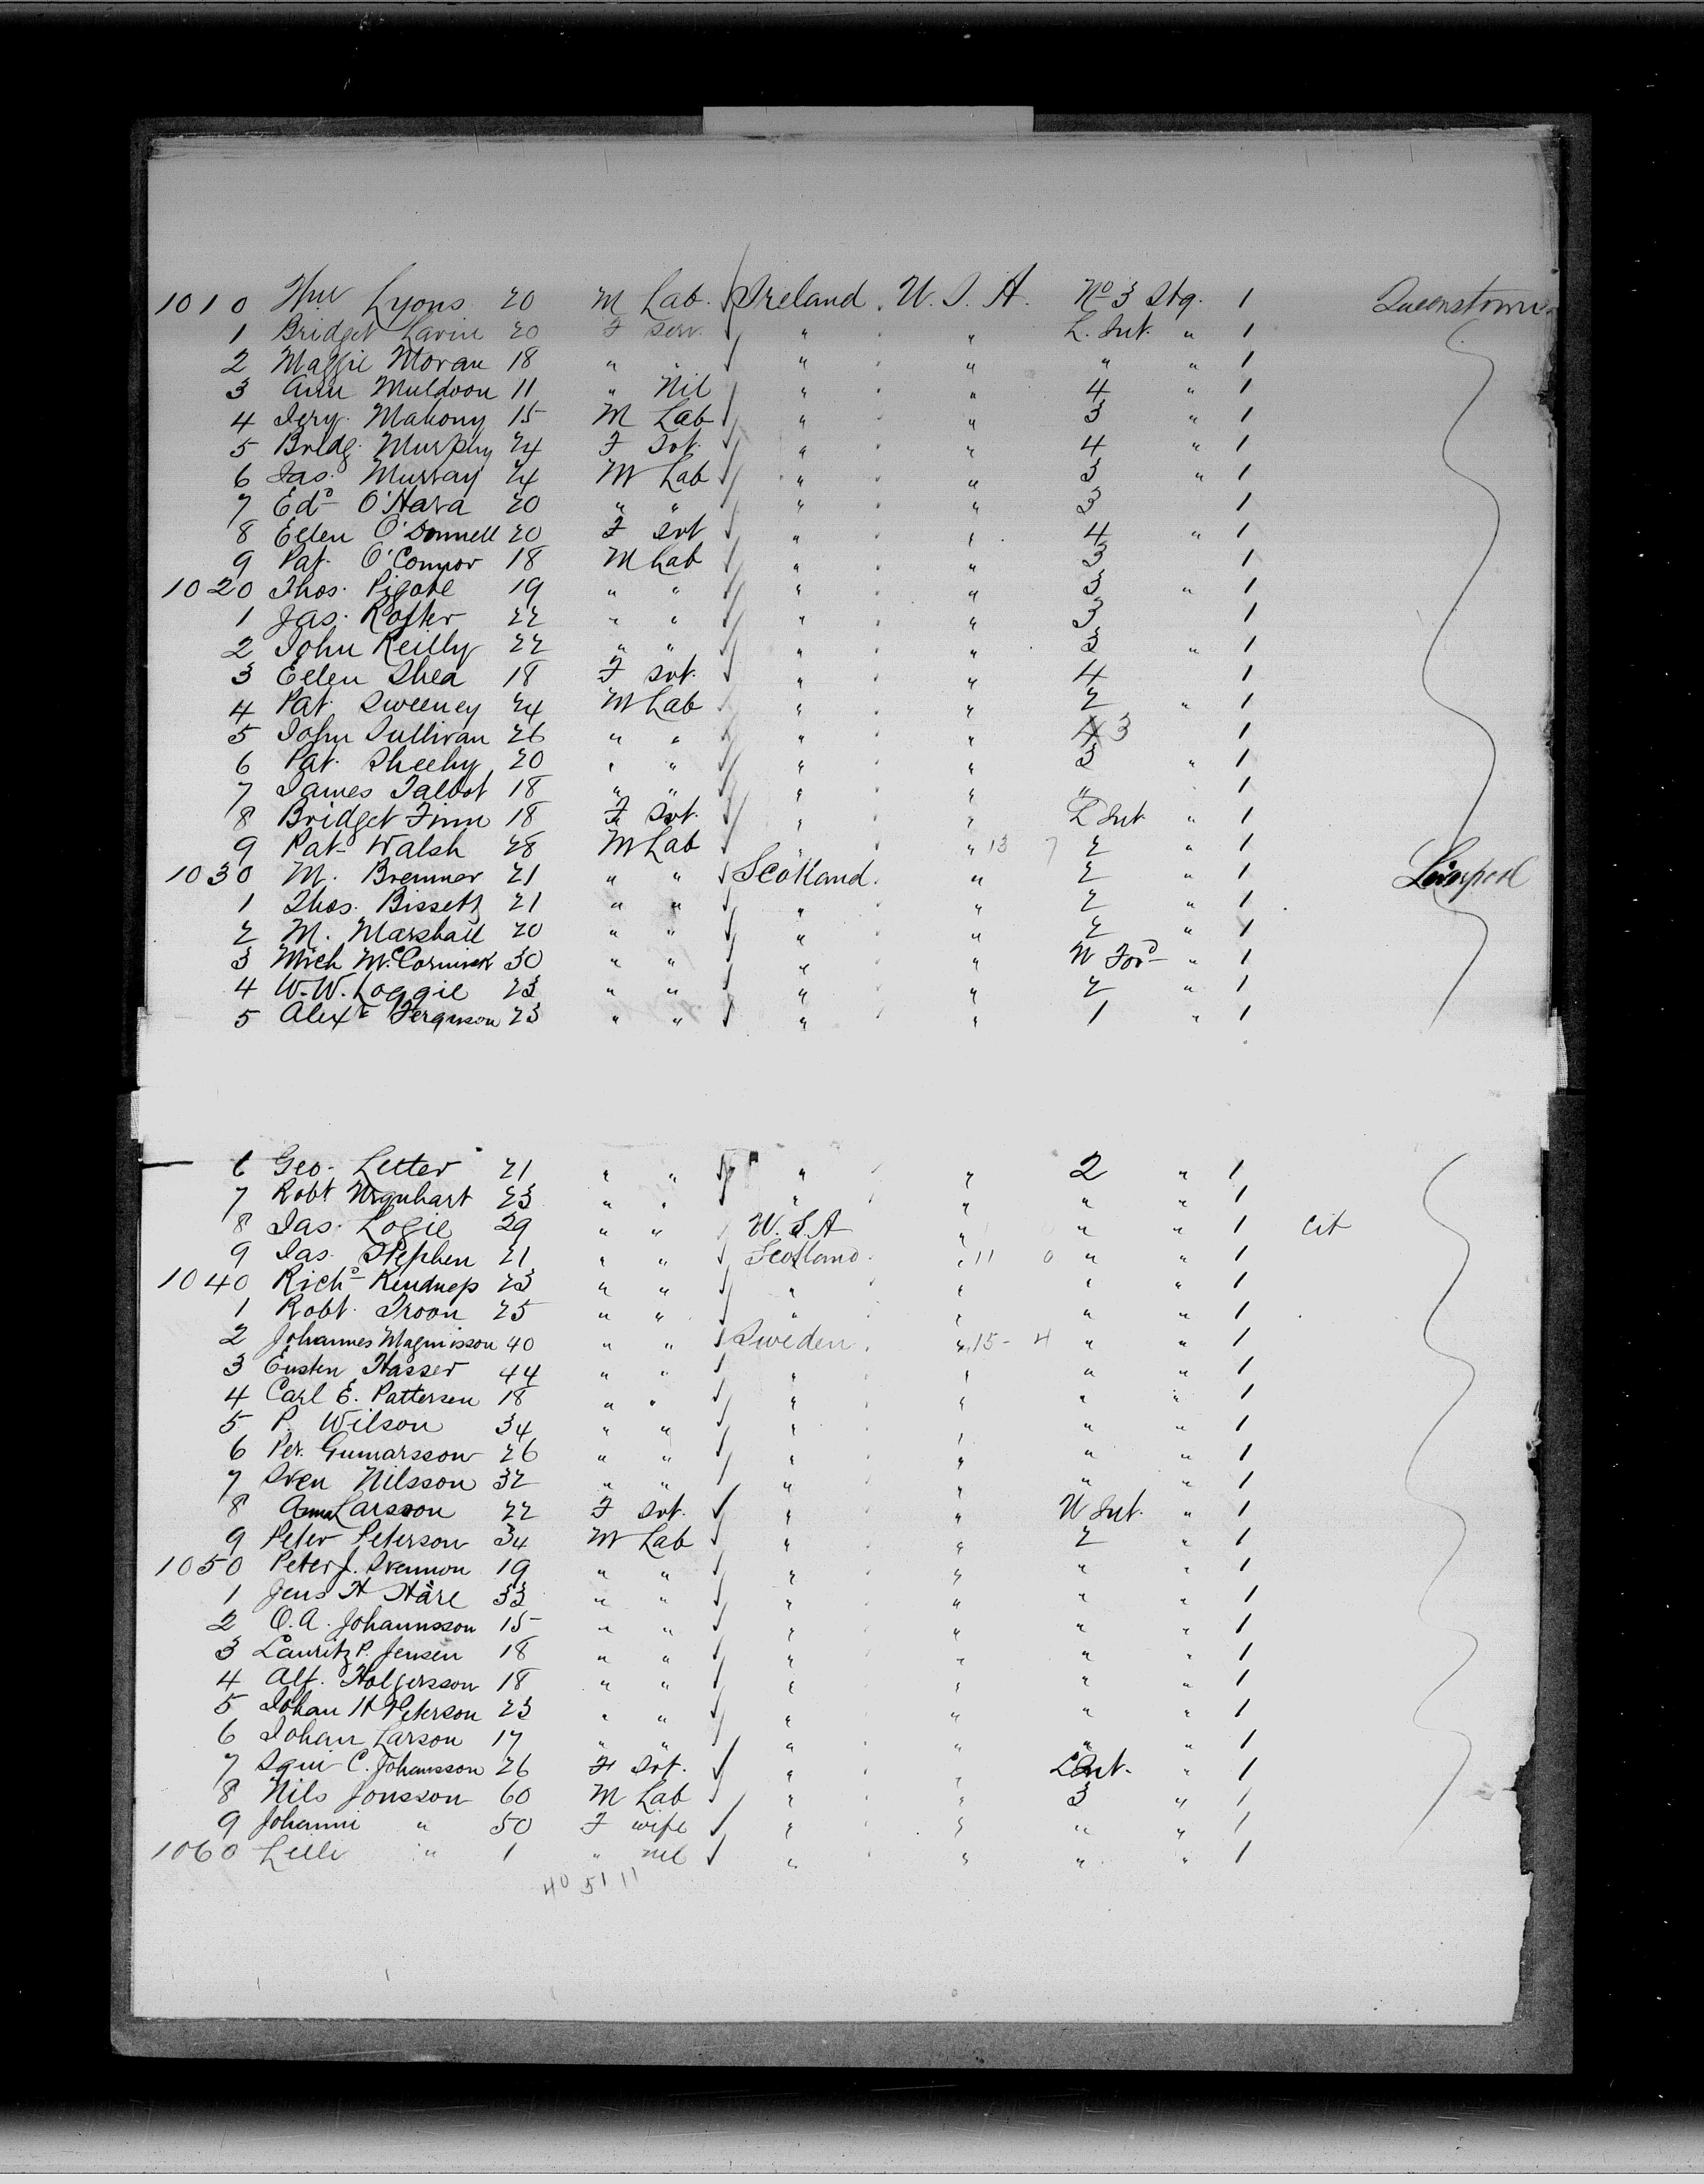 1010 Wm Lyons 20 M Lab. Ireland. U.S.A. No 3 Stg. 1 Queenstown
1 Bridget Lavin 20 F Serv. " " L. Int. " 1
2 Maggie Moran 18 " " " " " " 1
3 Ann Muldoon 11 " Nil " " 4 " 1
4 Jery. Mahony 15 M Lab " " 3 " 1
5 Bridg. Murphy 24 F Svt. " " 4 " 1
6 Jas. Murray 24 M Lab " " 3 " 1
7 Edd O'Hara 20 " " " " 3 1
8 Ellen O'Donnell 20 F Svt " " 4 " 1
9 Pat. O'Connor 18 M Lab " " 3 1
1020 Thos. Pigott 19 " " " " 3 " 1
1 Jas. Rofter 22 " " " " 3 1
2 John Reilly 22 " " " " 3 " 1
3 Ellen Shea 18 F Svt. " " 4 1
4 Pat. Sweeney 24 M Lab " " 2 " 1
5 John Sullivan 26 " " " " 4 3 1
6 Pat. Sheehy 20 " " " " 3 " 1
7 James Talbot 18 " " " " " 1
8 Bridget Finn 18 F Svt. " " L Int " 1
9 Pat Walsh 28 M Lab " " 13 7 2 " 1
1030 M. Bremner 21 " " Scotland. " 2 " 1 Liverpool
1 Thos. Bissett 21 " " " " 2 " 1
2 M. Marshall 20 " " " " 2 " 1
3 Mich McCormick 30 " " " " U Ford " 1
4 W.W. Loggie 23 " " " " 2 " 1
5 Alexr Ferguson 23 " " " " 1 " 1
6 Geo. Letter 21 " " " " 2 " 1
7 Robt Urquhart 23 " " " " " " 1
8 Jas. Logie 29 " " U.S.A " " " 1 Cit
9 Jas. Stephen 21 " " Scotland. " 11 0 " " 1
1040 Richd 23 " " " " " " 1
1 Robt. Troon 25 " " " " " " 1
2 Johannes Magnisson 40 " " Sweden. " 15 - 4 " " 1
3 Eusten Hasser 44 " " " " " " 1
4 Carl E. Pattersen 18 " " " " " " 1
5 P. Wilson 34 " " " " " " 1
6 Per. Gunnarsson 26 " " " " " " 1
7 Sven Nilsson 32 " " " " " " 1
8 Anna Larsson 22 F Svt. " " U Int. " 1
9 Peter Peterson 34 M Lab " " 2 " 1
1050 Peter J. 19 " " " " " " 1
1 Jens H Häre 33 " " " " " " 1
2 O.A. Johannsson 15 " " " " " " 1
3 Lauritz P. Jensen 18 " " " " " " 1
4 Alf. Holgersson 18 " " " " " " 1
5 Johan H Peterson 23 " " " " " " 1
6 Johan Larson 17 " " " " " " 1
7 C. Johansson 26 F Svt. " " L Int. " 1
8 Nils Jonsson 60 M Lab " " 3 " 1
9 Johanni " 50 F wife " " " " 1
1060 Lilli " 1 " nil " " " " 1
40 51 11